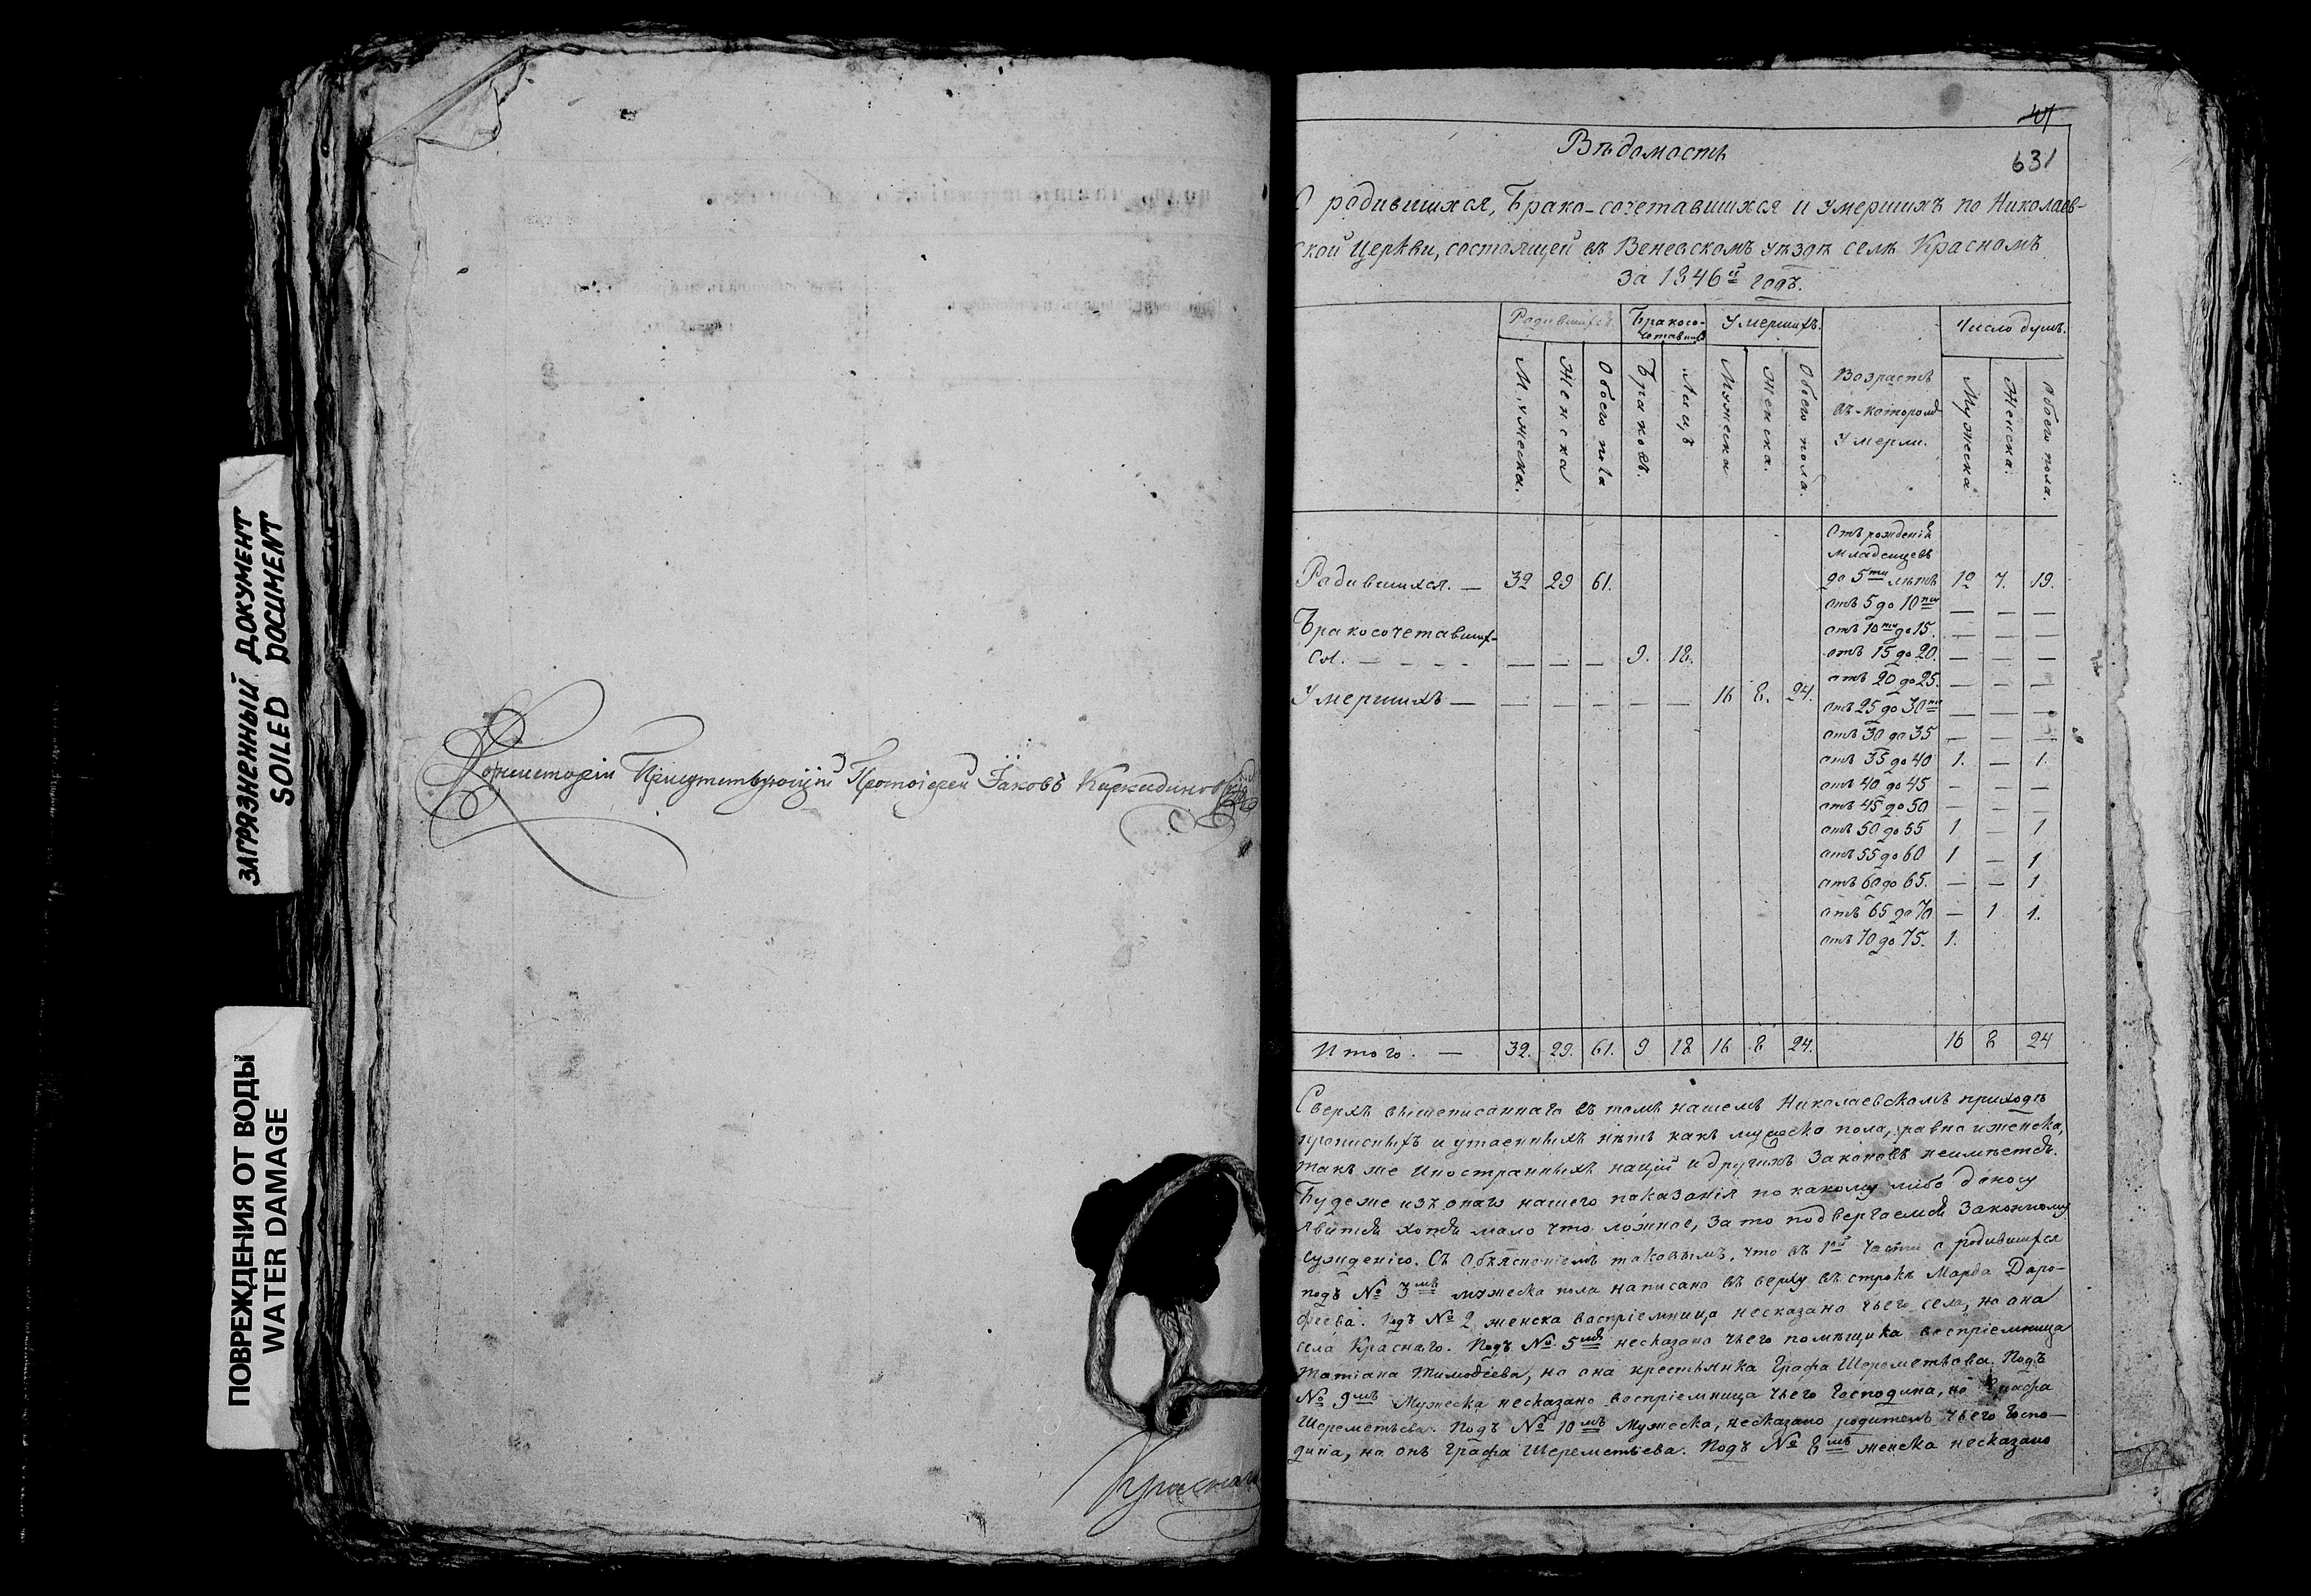 ЗАГРЯЗНЕННЫЙ ДОКУМЕНТ
SOILED DOCUMENT
ПОВРЕЖДЕНИЯ ОТ ВОДЫ
WATER DAMAGE
Консисторіи Присутствующій Протоіерей Іаковъ
Краснаго
41
631
Вѣдомость
О родившихся, Брако-сочетавшихся и умершихъ по Николаев-
ской Церкви, состоящей въ Веневскомъ уѣздѣ селѣ Красномъ
За 1846й годъ.
Родившихся Бракосо-четавших Умершихъ. Возрастъ въ-которомъ Умерли. Число душъ.
Мужеска. Женска Обоего пола Браковъ. Лицъ Мужеска Женска. Обоего пола. Мужеска Женска. Обоего пола.
Отъ рожденія
младенцевъ
Родившихся. — 32 29 61. до 5ти лѣтъ 12 7. 19.
отъ 5 до 10ти — — —
Бракосочетавших- отъ 10ти до 15. — — —
ся. — — — — — — — 9. 18. отъ 15 до 20. — — —
отъ 20 до 25. — — —
Умершихъ — — — — — — 16 8. 24. отъ 25 до 30ти — — —
отъ 30 до 35 — — —
отъ 35 до 40 1. — 1.
отъ 40 до 45 — — —
отъ 45 до 50 — — —
отъ 50 до 55 1 — 1
отъ 55 до 60 1 — 1
отъ 60 до 65. — — 1
отъ 65 до 70 — 1 1.
отъ 70 до 75. 1.
Итого. — 32. 29. 61. 9 18 16 8 24. 16 8 24
Сверхъ вышеписаннаго въ томъ нашемъ Николаевскомъ приходѣ
прописныхъ и утаенныхъ нѣтъ какъ мужеска пола, равно и женска,
такъ же Иностранныхъ націй и другихъ Законовъ неимѣется.
Будеже изъ онаго нашего показанія по какому либо доносу
явится хотя мало что ложное, за то подвергаемся Законному
сужденію. Съ Объясненіемъ таковымъ, что въ 1ой части о родившихся
подъ № 3мъ мужеска пола написано въ верху въ строкѣ Марѳа Доро-
ѳеева. Подъ № 2 женска воспріемница несказано чьего села, но она
села Краснаго. Подъ № 5мъ несказано чьего помѣщика воспріемница
Татіана Тимоѳеева, но она крестьянка Графа Шереметьева. Подъ
№ 9мъ Мужеска несказано воспріемница чьего Господина, но Графа
Шереметьева. Подъ № 10мъ Мужеска, несказано родитель чьего Госпо-
дина, но онъ Графа Шереметьева. Подъ № 8мъ женска несказано